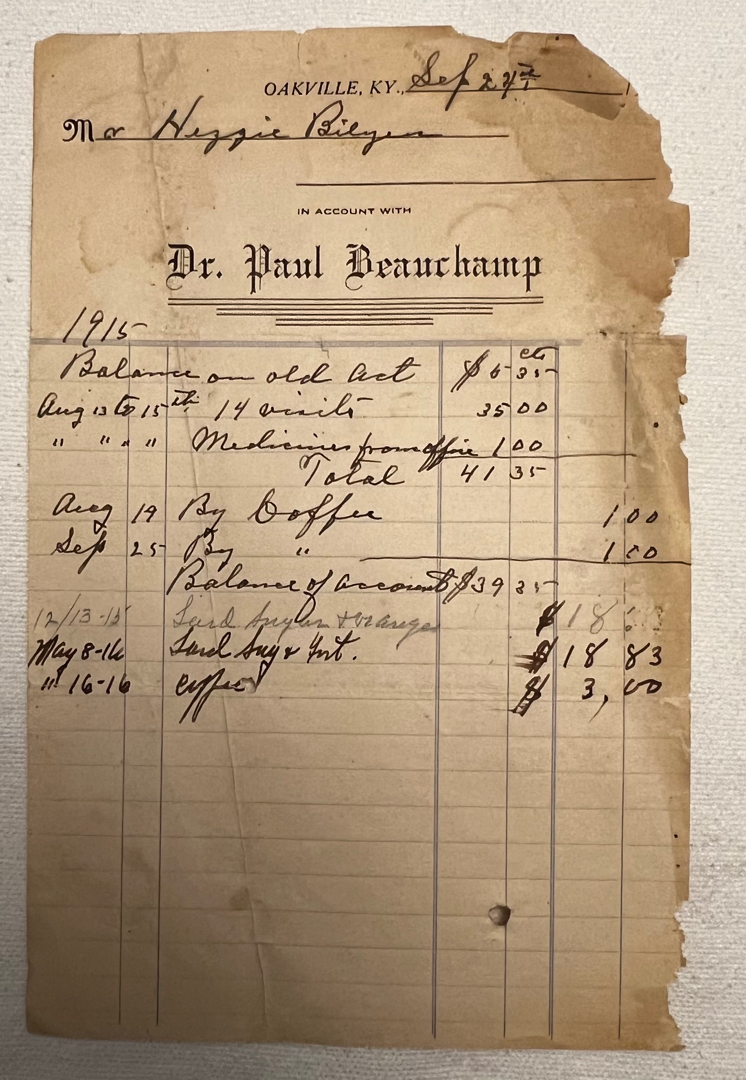 OAKVILLE, KY., Sep 27th 1
Mr Hezzie Bilyeu
IN ACCOUNT WITH
Dr. Paul Beauchamp
1915
cts
Balance on old Act $5 35
Aug 13 to 15th 14 visits 35 00
" " " " Medicines from office 1 00
Total 41 35
Aug 19 By Coffee 1 00
Sep 25 By " 1 00
Balance of account $39 35
12/13-15 Lard Sugar & $18
May 8-16 Lard Sug & $18 83
" 16-16 coffee $ 3,00